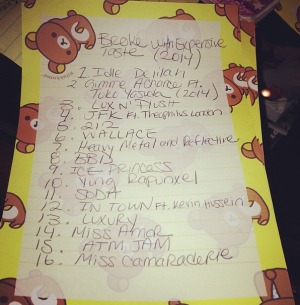 Broke with Expensive
Taste
(2014)
1 Idle Delilah
2 Gimme A Chance Ft.
(2014)
3. Lux N' Rush
4. JFK Ft. Theophilus London
5. 212
6. WALLACE
7. Heavy Metal and Reflective
8. BBD
9. ICE PRINCESS
10. Yung Rapunxel
11. SODA
12. IN TOWN Ft. Kevin Hussein
13. LUXURY
14. Miss Amor
15. ATM JAM
16. Miss Camaraderie